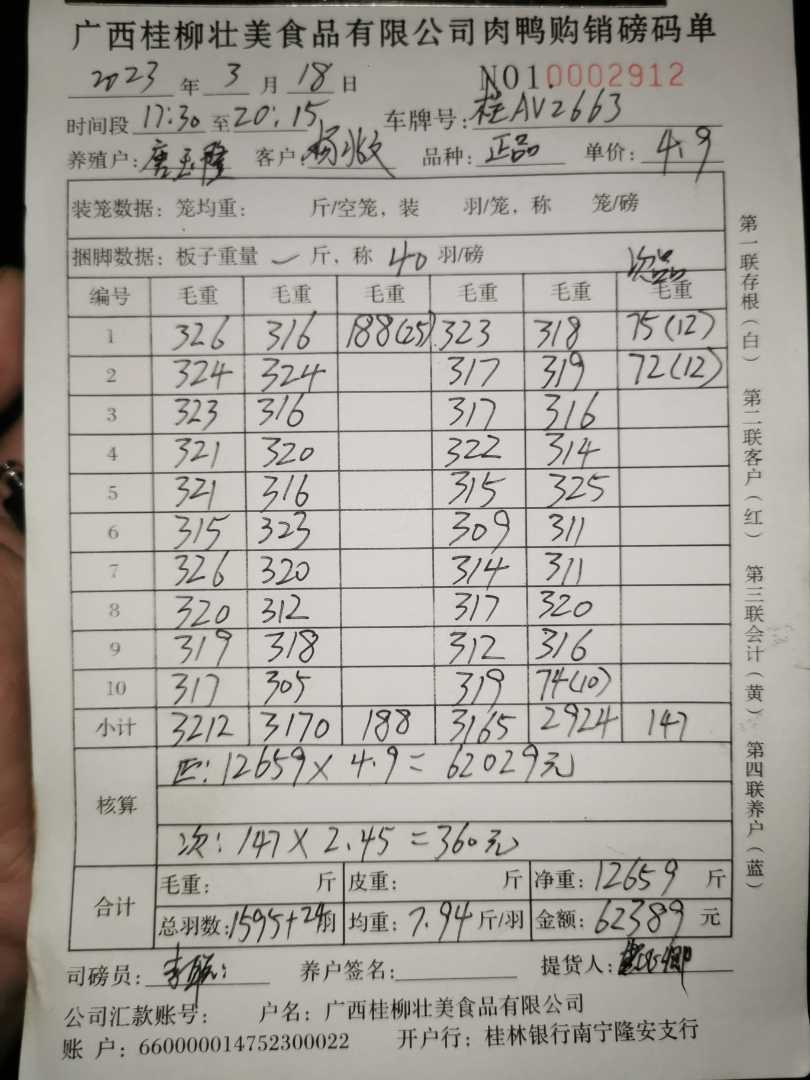 广西桂柳壮美食品有限公司肉鸭购销磅码单
2023 年 3 月 18 日 NO1.0002912
时间段 17:30 至 20:15 车牌号: 桂AV2663
养殖户: 唐玉隆 客户: 杨兆文 品种: 正品 单价: 4.9
装笼数据: 笼均重: 斤/空笼, 装 羽/笼, 称 笼/磅
捆脚数据: 板子重量 一 斤, 称 40 羽/磅 次品
编号 毛重 毛重 毛重 毛重 毛重 毛重
1 326 316 188(25) 323 318 75(12)
2 324 324 317 319 72(12)
3 323 316 317 316
4 321 320 322 314
5 321 316 315 325
6 315 323 309 311
7 326 320 314 311
8 320 312 317 320
9 319 318 312 316
10 317 305 319 74(10)
小计 3212 3170 188 3165 2924 147
核算 正: 12659 × 4.9 = 62029元
次: 147 × 2.45 = 360元
合计 毛重: 斤 皮重: 斤 净重: 12659 斤
总羽数: 1595+24羽 均重: 7.94 斤/羽 金额: 62389 元
司磅员: 养户签名: 提货人:
公司汇款账号: 户名: 广西桂柳壮美食品有限公司
账 户: 660000014752300022 开户行: 桂林银行南宁隆安支行
第一联存根(白) 第二联客户(红) 第三联会计(黄) 第四联养户(蓝)